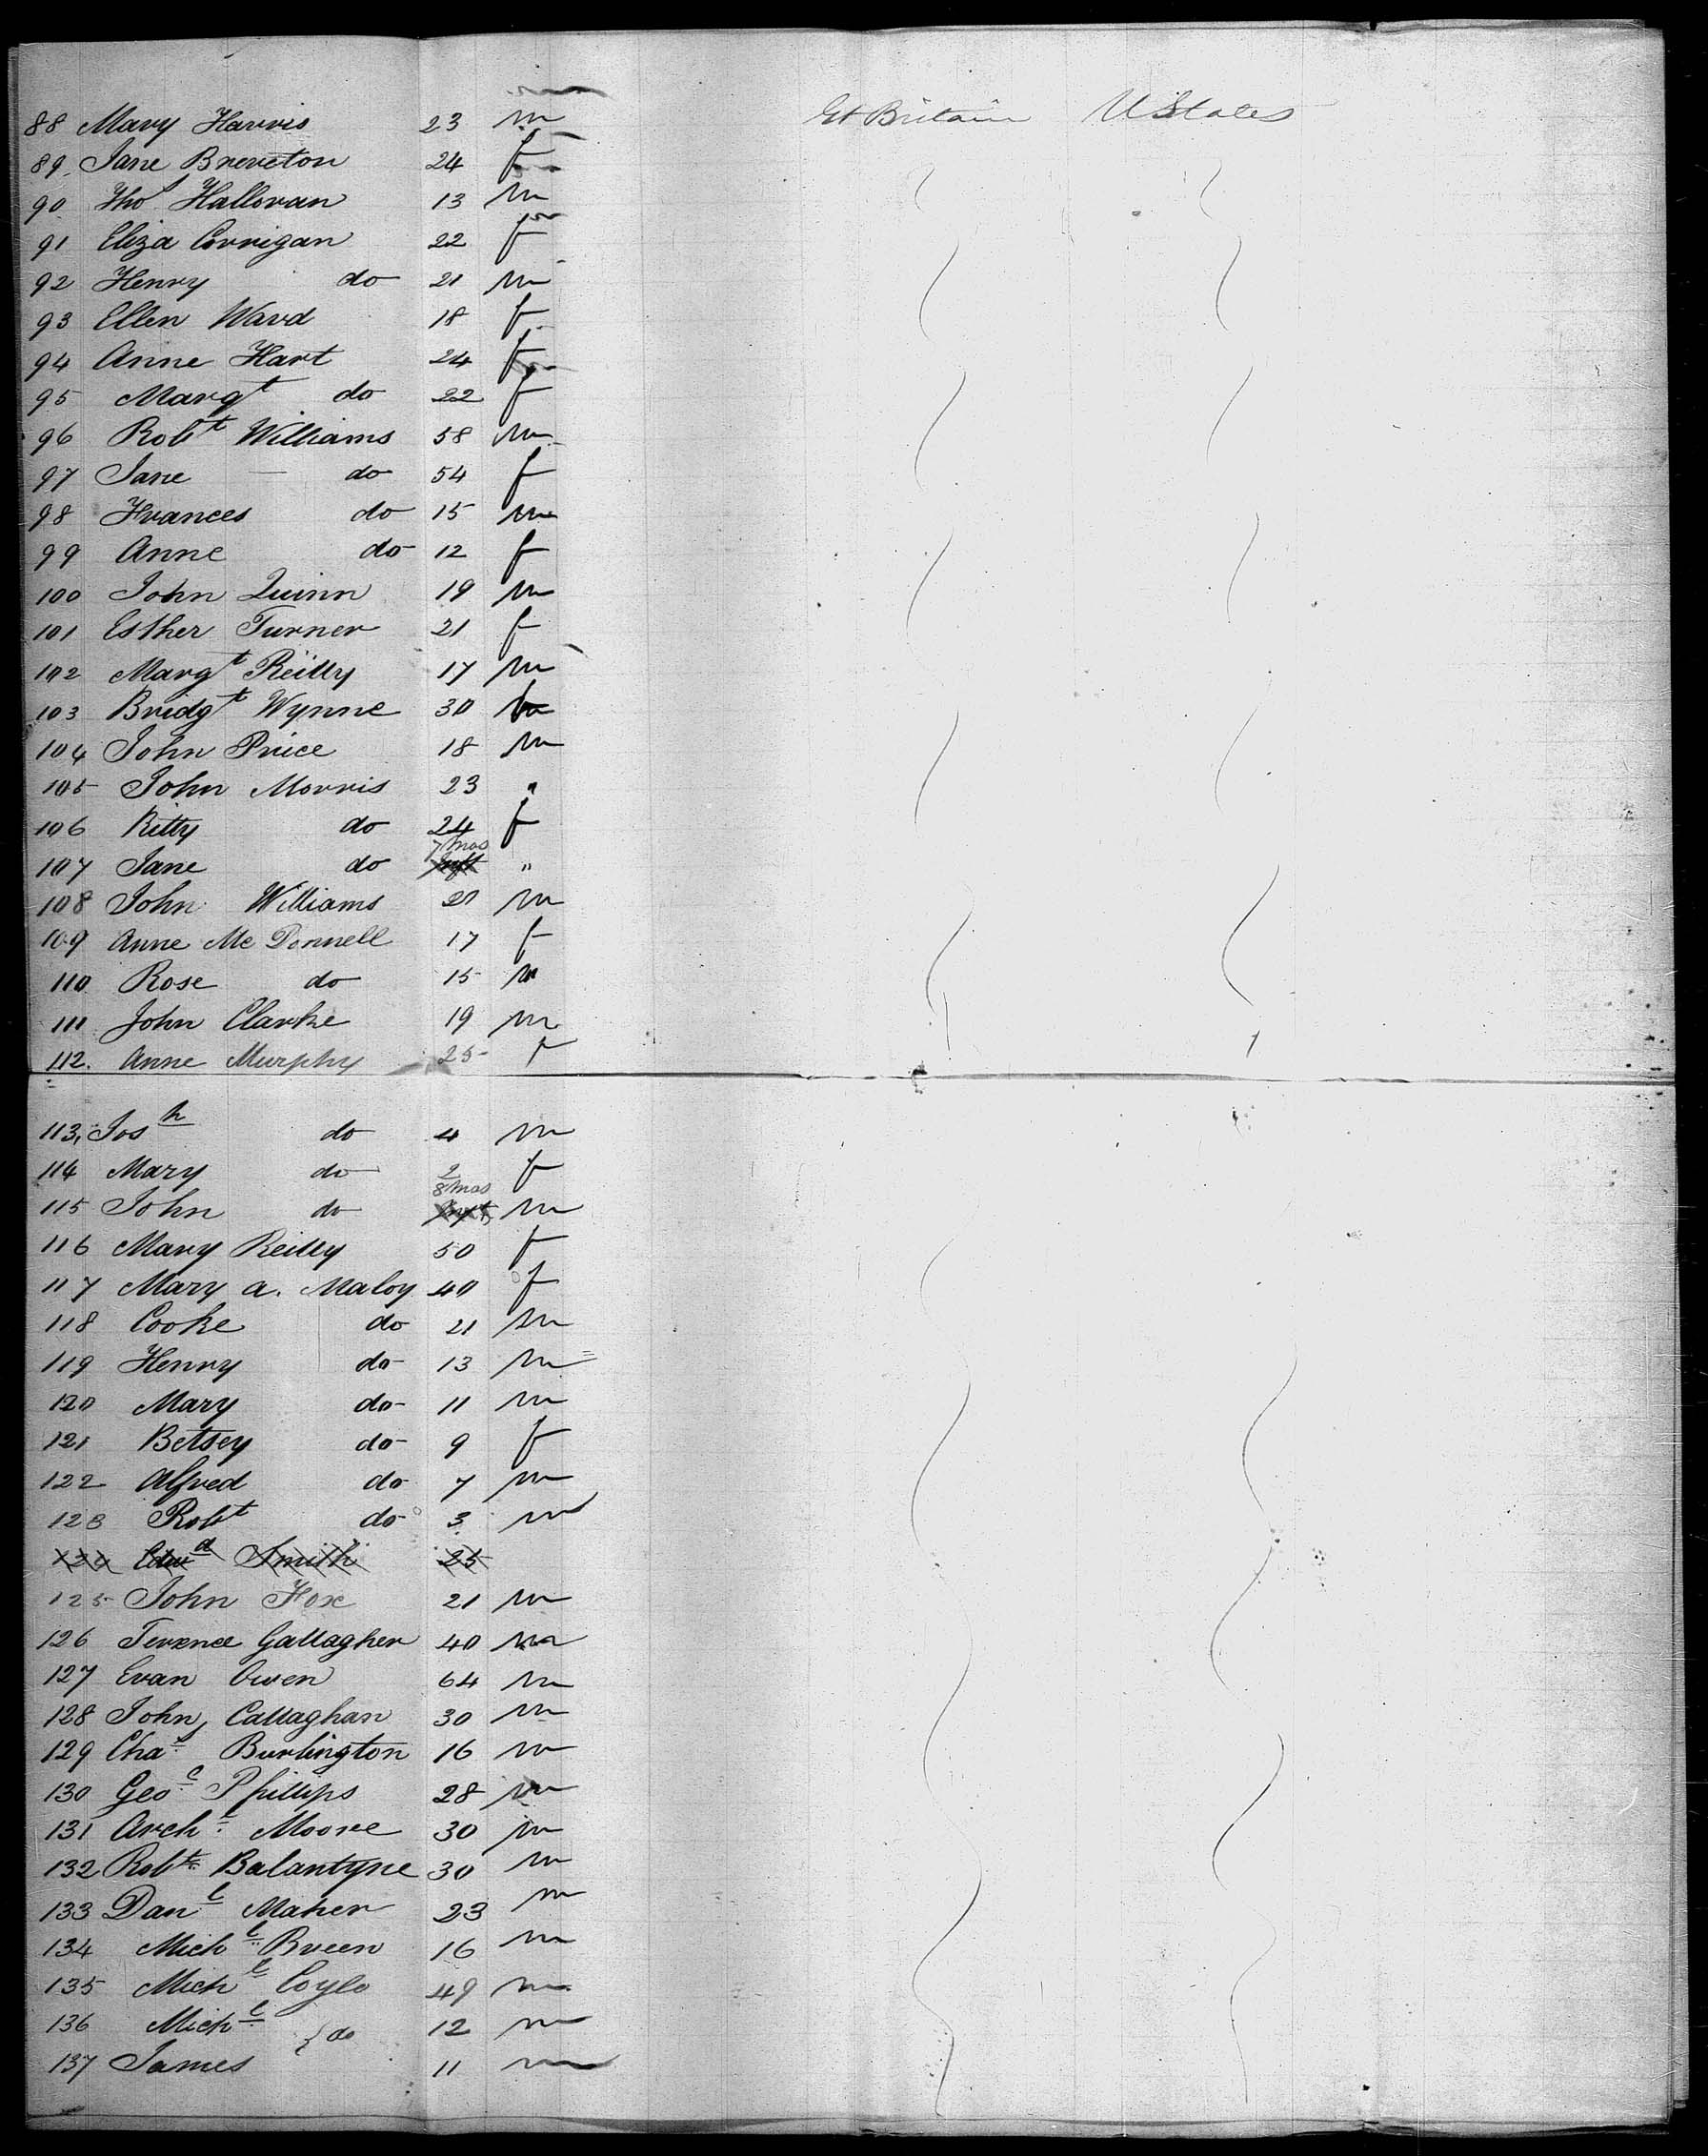 88 Mary Harris 23 m Gt Britain U States
89. Jane Brereton 24 f
90 Thos Halloran 13 m
91 Eliza Corrigan 22 f
92 Henry do 21 m
93 Ellen Ward 18 f
94 Anne Hart 24 f
95 Margt do 22 f
96 Robt Williams 58 m
97 Jane do 54 f
98 Frances do 15 m
99 Anne do 12 f
100 John Quinn 19 m
101 Esther Turner 21 f
102 Margt Reilly 17 m
103 Bridgt Wynne 30
104 John Price 18 m
105 John Morris 23 "
106 Kitty do 24 f
7 mos
107 Jane do Inft "
108 John Williams 21 m
109 Anne McDonnell 17 f
110 Rose do 15 m
111 John Clarke 19 m
112. Anne Murphy 25 f
113, Josh do 4 m
114 Mary do 2 f
8 mos
115 John do Inft m
116 Mary Reilly 50 f
117 Mary A. Maloy 40 f
118 Cooke do 21 m
119 Henry do 13 m
120 Mary do 11 m
121 Betsey do 9 f
122 Alfred do 7 m
123 Robt do 3 m
124 Edwd Smith 25
125 John Fox 21 m
126 Terence Gallagher 40 m
127 Evan Owen 64 m
128 John Callaghan 30 m
129 Chas Burlington 16 m
130 Geoe Phillips 28 m
131 Arch. Moore 30 m
132 Robt Balantyne 30 m
133 Danl Maher 23 m
134 Michl Breen 16 m
135 Michl Coyle 49 m
136 Michl } do 12 m
137 James 11 m